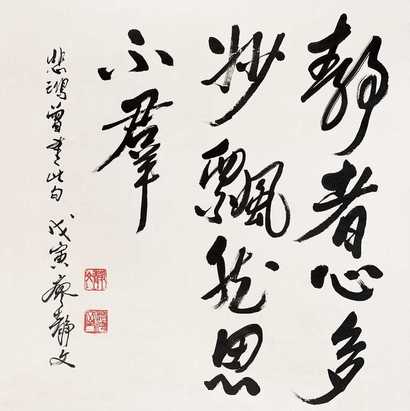 静者心多
妙飘然思
不群
悲鸿曾书此句戊寅廖静文